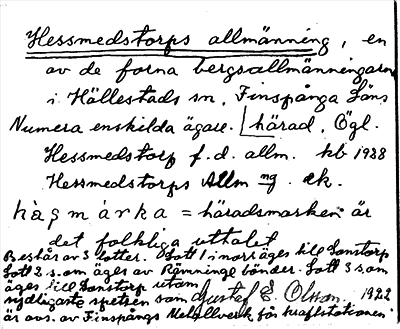 Hessmedstorps allmänning, en
av de forna bergsallmänningarna
i Hällestads sn, Finspånga Läns
Numera enskilda ägare. härad, Ögl.
Hessmedstorp f.d. allm. kb 1938
Hessmedstorps Allmng. ek.
hàgmárka = häradsmarken är
det folkliga uttalet
Består av 3 lotter. Lott 1 i norr äges till Sonstorp
Lott 2 s.om äges av Rämninge bönder. Lott 3 s.om
äges till Sonstorp utom
sydligaste spetsen som Gustaf E. Olsson 1922
är avs. av Finspångs Metallverk för kraftstationen